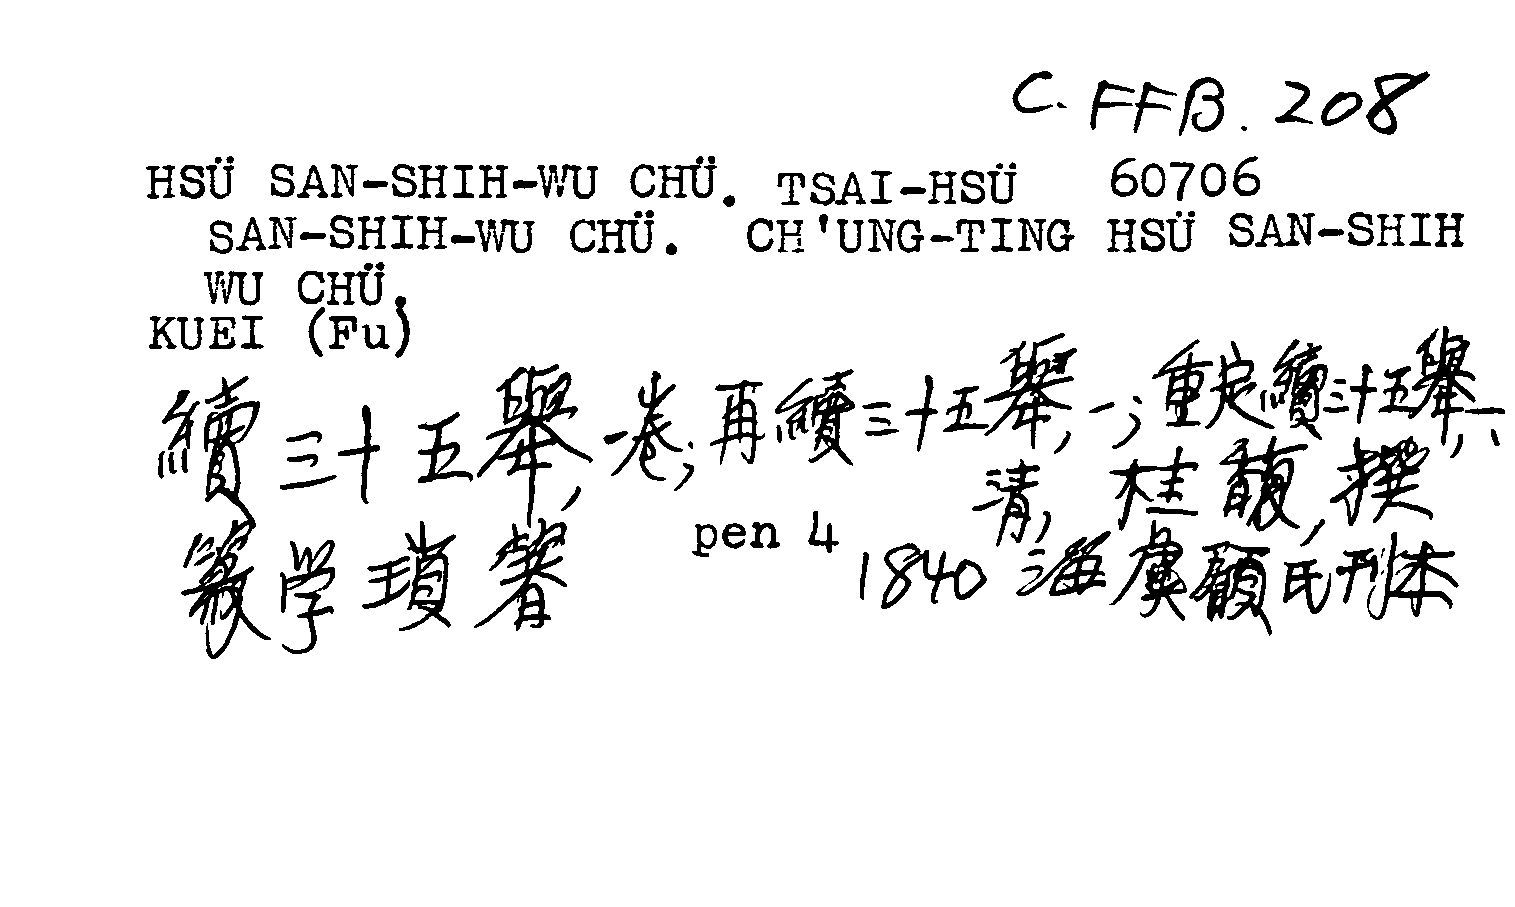 C. FFB. 208
HSÜ SAN-SHIH-WU CHÜ. TSAI-HSÜ 60706
SAN-SHIH-WU CHÜ. CH'UNG-TING HSÜ SAN-SHIH
WU CHÜ.
KUEI (Fu)
續三十五舉,一卷;再續三十五舉,一;重定續三十五舉,一、
清,桂馥,撰
篆学瑣著 pen 4 1840 海虞顧氏刊本